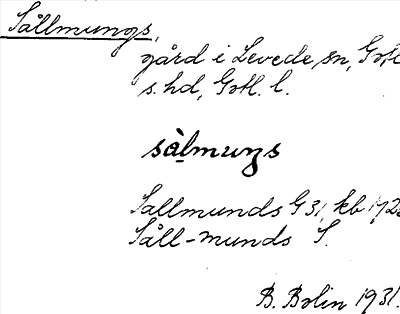 Sållmungs,
gård i Levede sn, Gotl.
s. hd, Gotl. l.
sàlmuŋs
Sallmunds G 31, kb 172
Såll-munds S.
B. Bolin 1931.